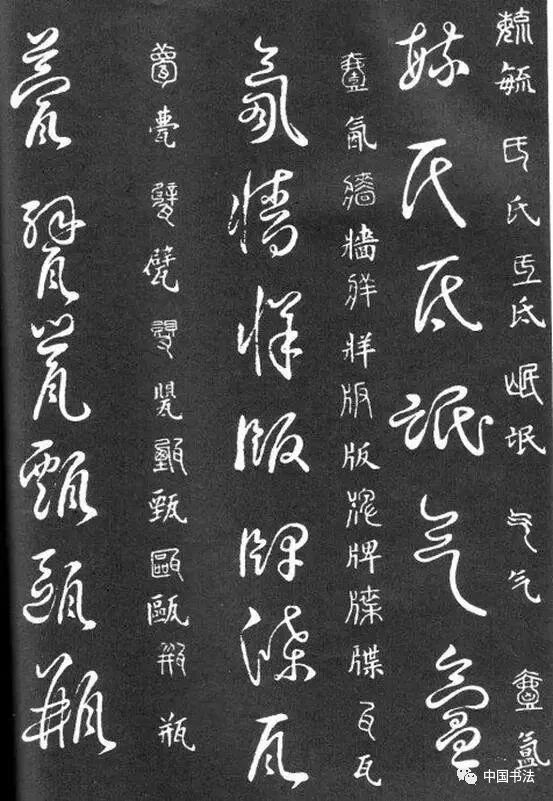 毓 毓 氏 氏 氐 氐 氓 氓 气 气 氲
毓 氏 氐 氓 气 氲
氤 牆 牆 牂 牂 版 版 牌 牌 牒 牒 瓦 瓦
氤 牆 牂 版 牌 牒 瓦
甍 甍 甓 甓 甄 甄 甌 甌 瓶 瓶
甍 甓 甄 甌 瓶
中国书法